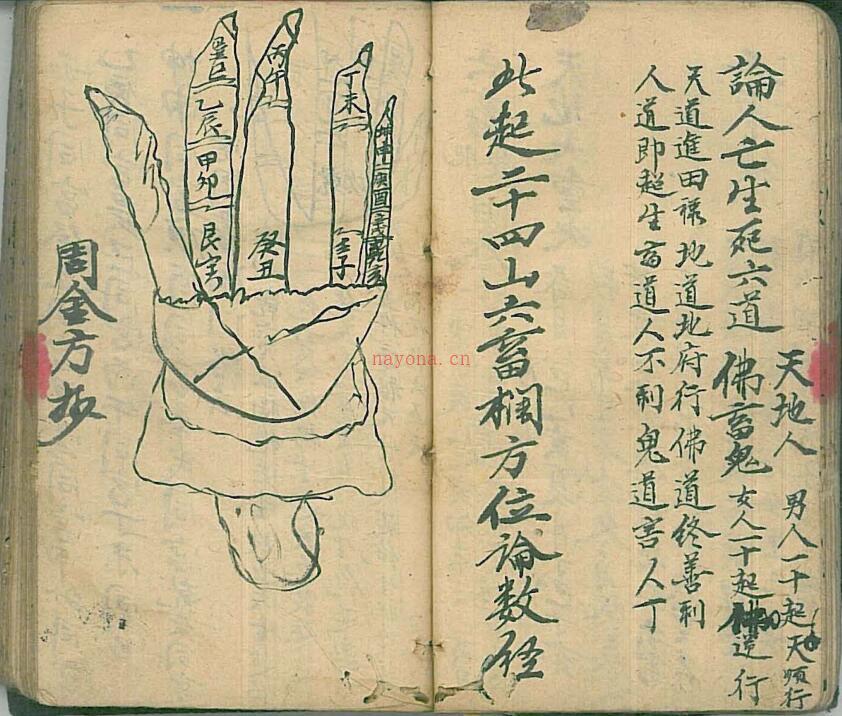 論人亡生死六道
天地人 男人一十起天順行
佛畜鬼 女人一十起佛逆行
天道進田祿地道地府行佛道終善利
人道即超生畜道人不利鬼道害人丁
此起二十四山六畜欄方位論数经
巽巳
乙辰
甲卯
艮寅
丙午
癸丑
丁未
壬子
坤申
庚酉
周金方抄
nayona.cn